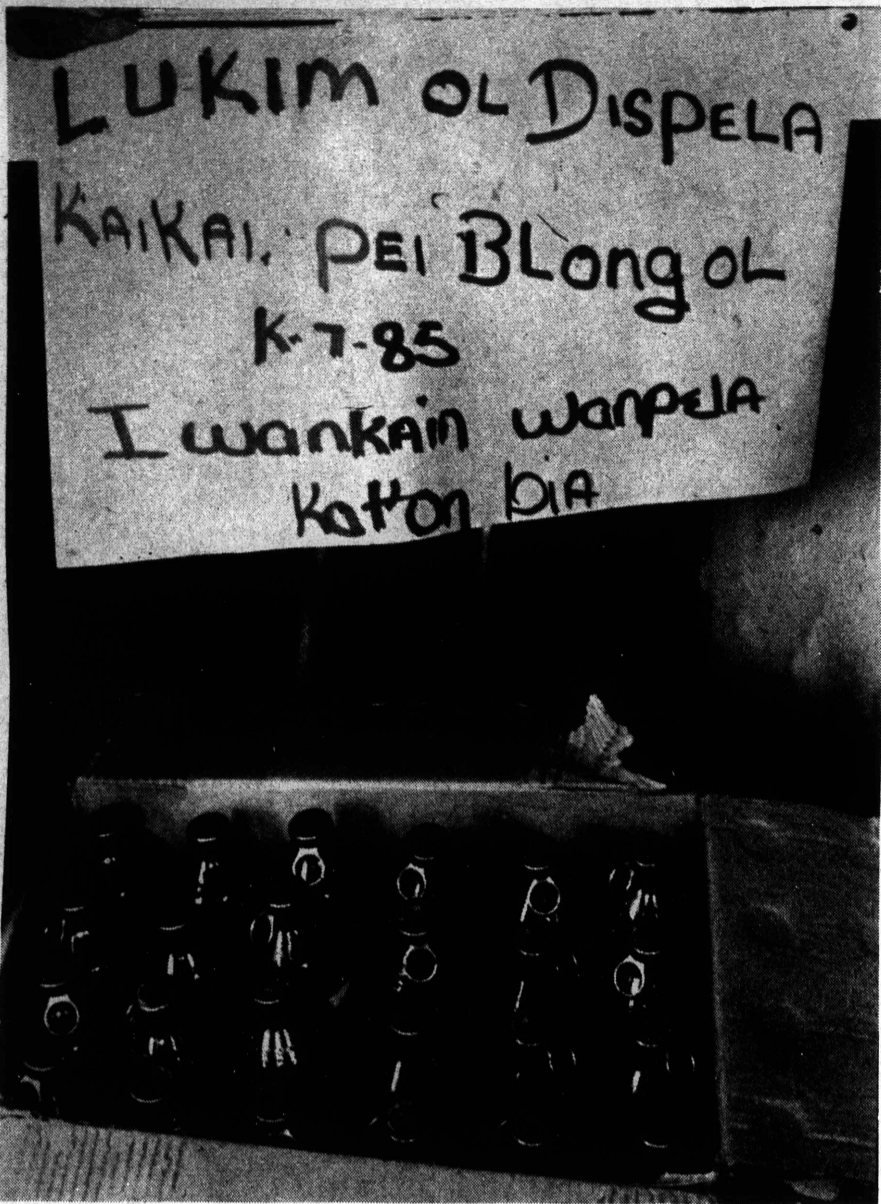 LUKIM OL DISPELA
KAIKAI. PEI BLONG OL
K-7-85
I wankain wanpela
Katton biA